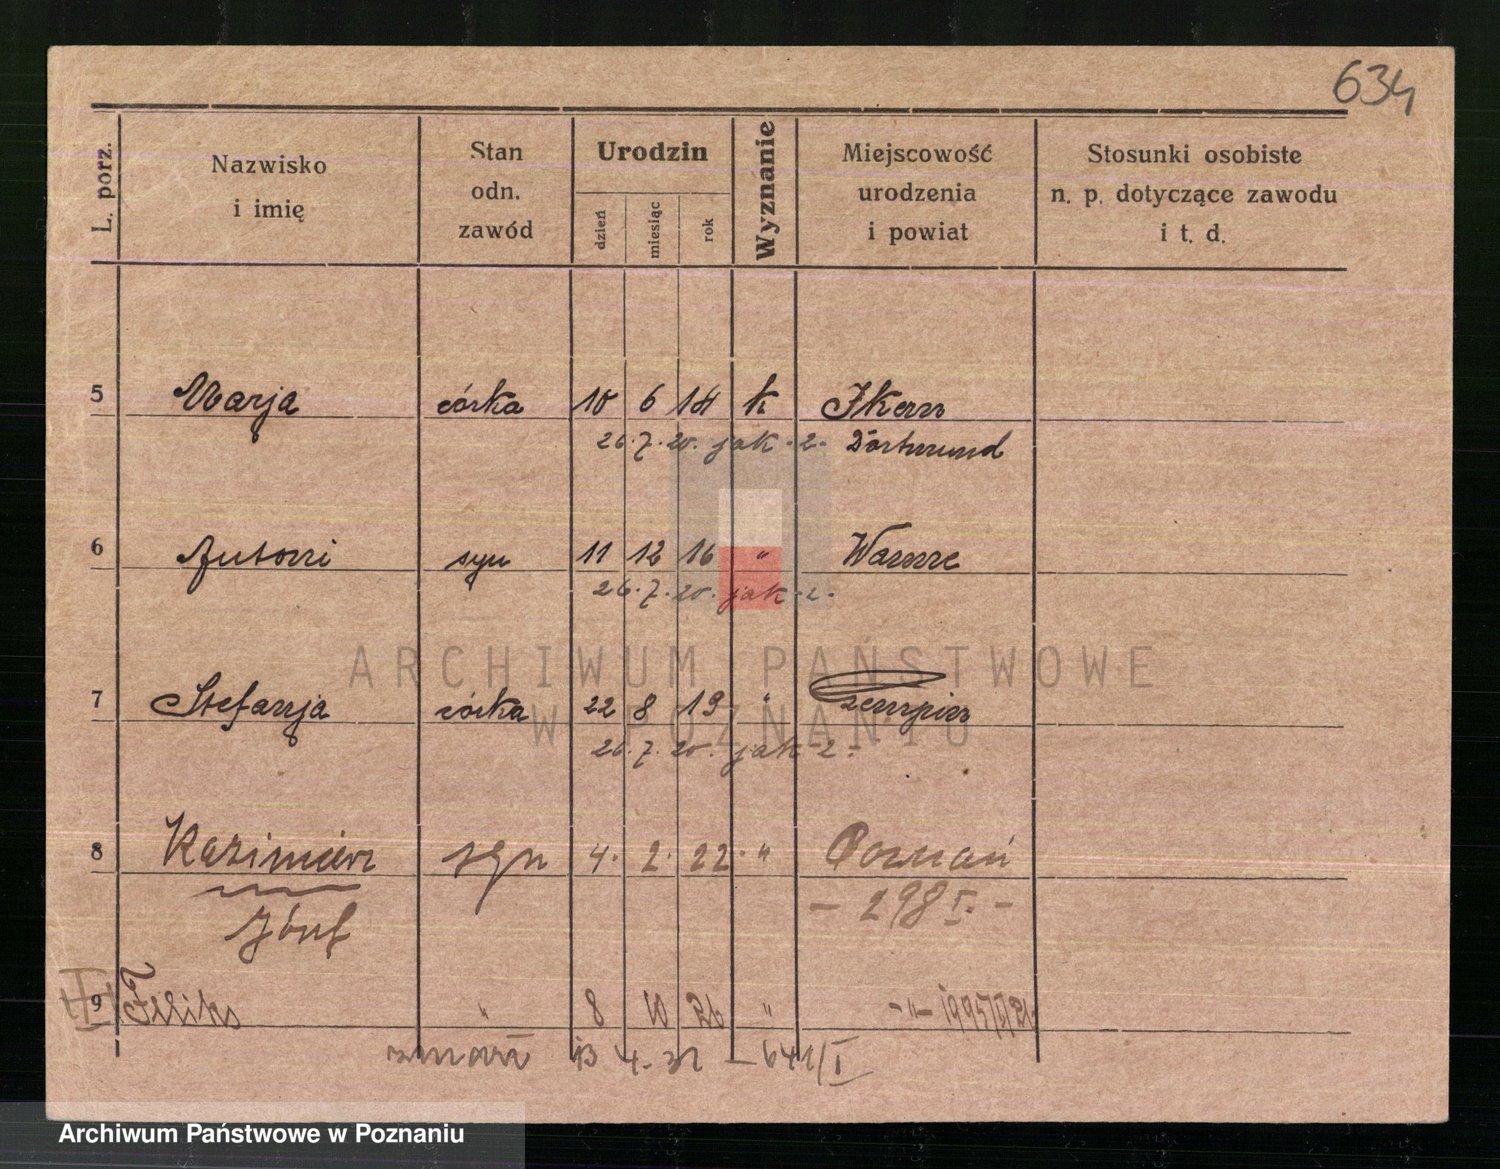 634
L. porz.
Nazwisko
i imię
Stan
odn.
zawód
Urodzin
dzień
miesiąc
rok
Wyznanie
Miejscowość
urodzenia
i powiat
Stosunki osobiste
n. p. dotyczące zawodu
i t. d.
5 Marja córka 10 6 14 k
26.7.20. jak -2- Dortmund
6 Antoni syn 11 12 16 " Wanne
26.7.20. jak -2-
7 Stefanja córka 22 8 19 "
26.7.20. jak -2-
8 Kazimierz syn 4. 2. 22. " Poznań
Józef - 298 I. -
9 Feliks " 8 10 26 " -"-
zmarł 13 4. 32 - 641/I
ARCHIWUM PAŃSTWOWE
W POZNANIU
Archiwum Państwowe w Poznaniu